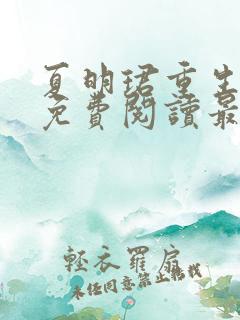 夏明珺重生
免費閱讀最
輕衣羅扇
未經同意禁止轉載